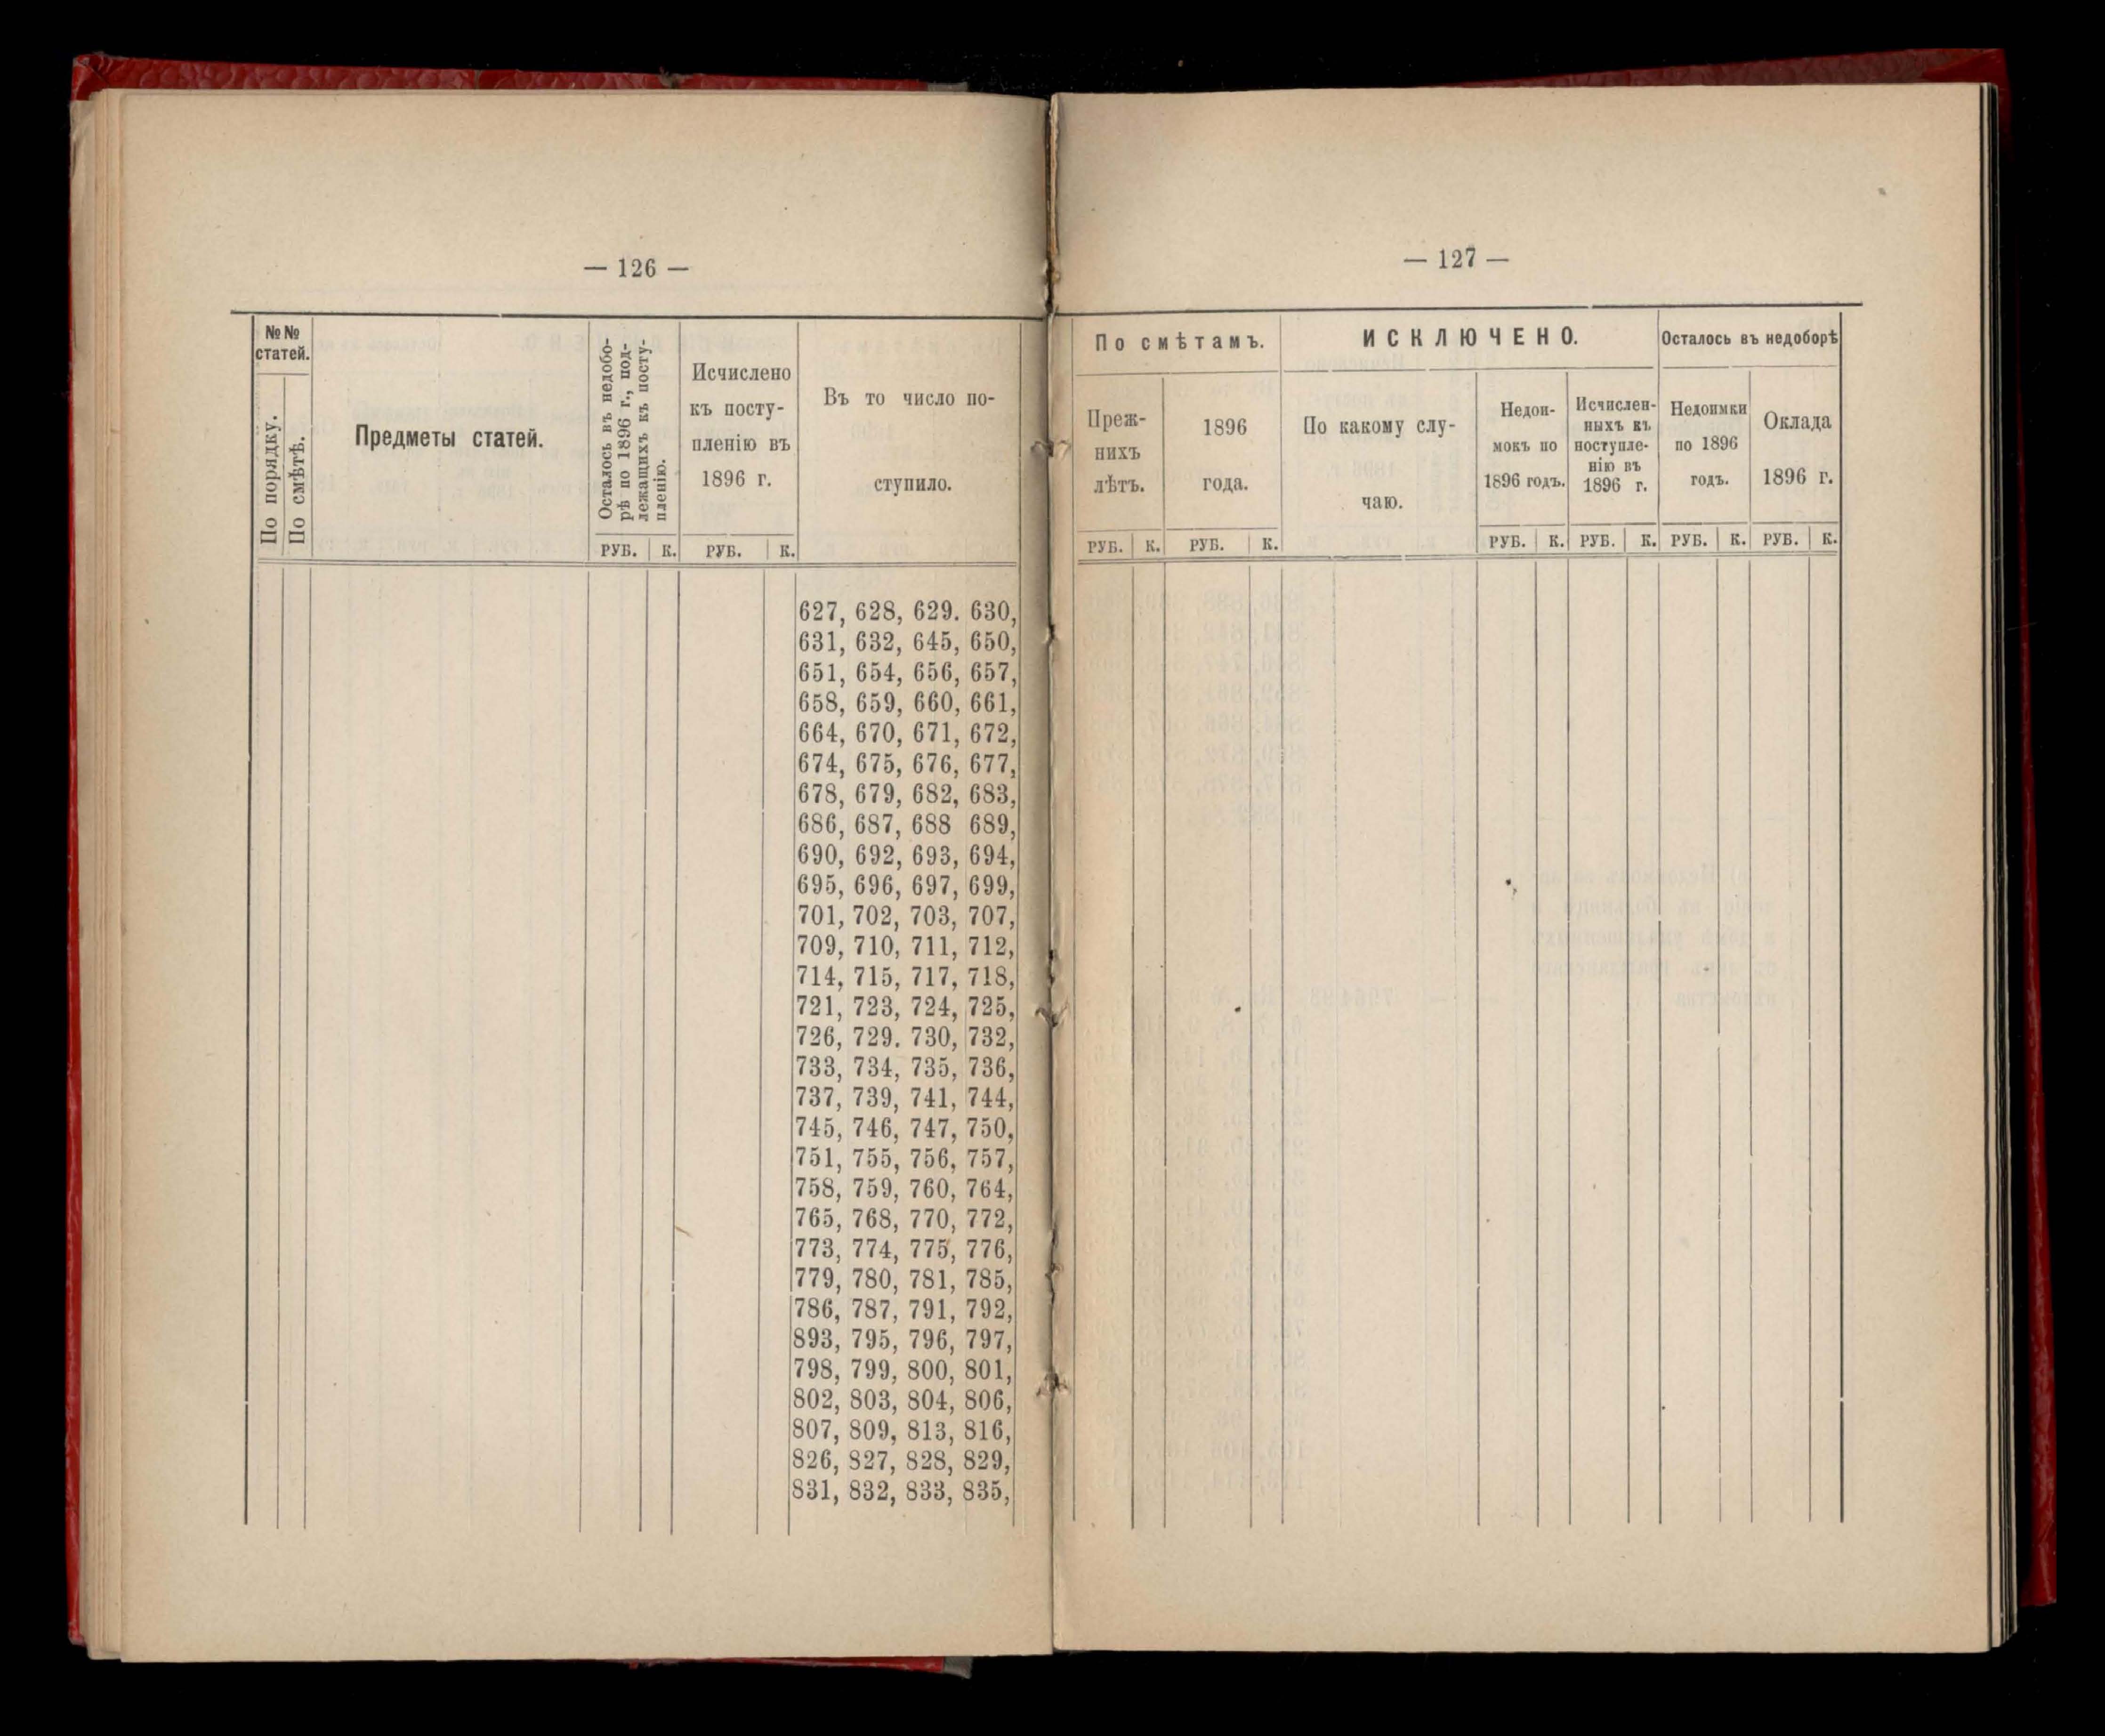 — 126 —
№№
статей.
По порядку.
По смѣтѣ.
Предметы статей.
Осталось въ недобо-
рѣ по 1896 г., под-
лежащихъ къ посту-
пленію.
Исчислено
къ посту-
пленію въ
1896 г.
Въ то число по-
ступило.
РУБ. К. РУБ. К.
627, 628, 629. 630,
631, 632, 645, 650,
651, 654, 656, 657,
658, 659, 660, 661,
664, 670, 671, 672,
674, 675, 676, 677,
678, 679, 682, 683,
686, 687, 688 689,
690, 692, 693, 694,
695, 696, 697, 699,
701, 702, 703, 707,
709, 710, 711, 712,
714, 715, 717, 718,
721, 723, 724, 725,
726, 729. 730, 732,
733, 734, 735, 736,
737, 739, 741, 744,
745, 746, 747, 750,
751, 755, 756, 757,
758, 759, 760, 764,
765, 768, 770, 772,
773, 774, 775, 776,
779, 780, 781, 785,
786, 787, 791, 792,
893, 795, 796, 797,
798, 799, 800, 801,
802, 803, 804, 806,
807, 809, 813, 816,
826, 827, 828, 829,
831, 832, 833, 835,
— 127 —
По смѣтамъ.
ИСКЛЮЧЕНО.
Осталось въ недоборѣ
Преж-
нихъ
лѣтъ.
1896
года.
По какому слу-
чаю.
Недои-
мокъ по
1896 годъ.
Исчислен-
ныхъ къ
поступле-
нію въ
1896 г.
Недоимки
по 1896
годъ.
Оклада
1896 г.
РУБ. К. РУБ. К. РУБ. К. РУБ. К. РУБ. К. РУБ. К.